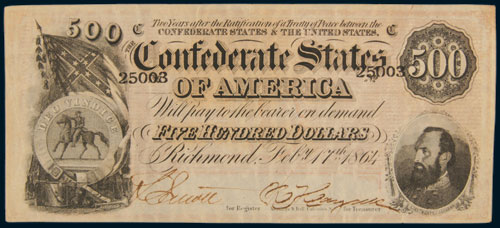 Two Years after the Ratification of a Treaty of Peace between the
CONFEDERATE STATES & THE UNITED STATES,
500 C THE C 500
Confederate States
25003 25003
OF AMERICA
Will pay to the bearer on demand
DEO VINDICE
FIVE HUNDRED DOLLARS
Richmond, Feby. 17th 1864.
for Register for Treasurer